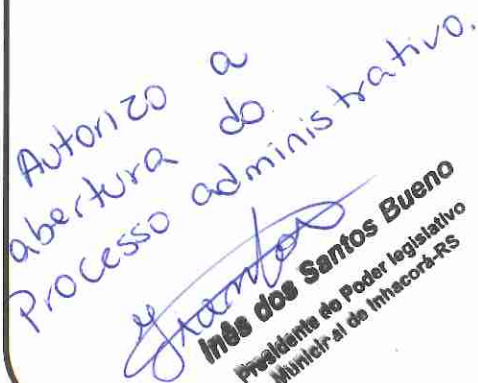 Autorizo a
abertura do
Processo administrativo.
Inês dos Santos Bueno
Presidente do Poder legislativo
Municipal de Inhacorá-RS